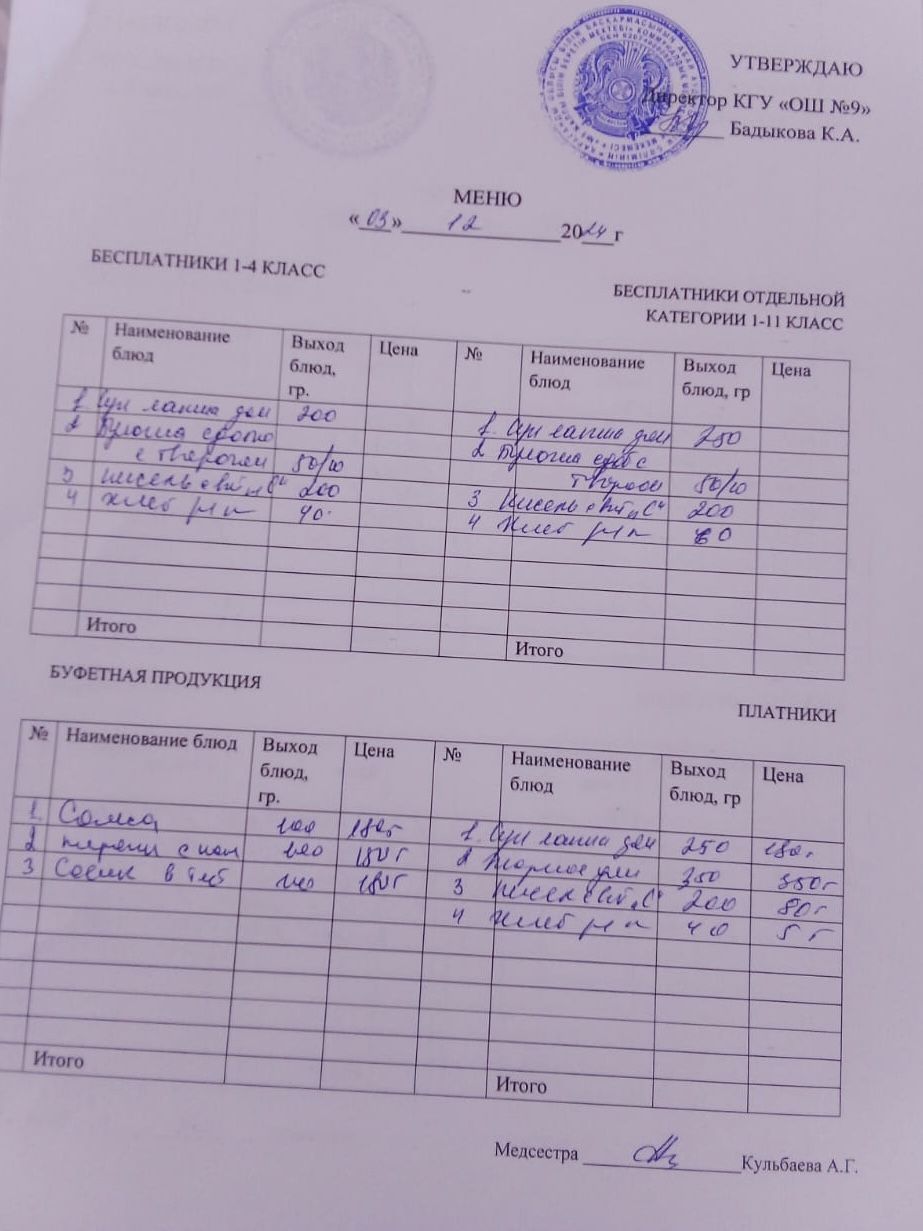 УТВЕРЖДАЮ
Директор КГУ «ОШ №9»
Бадыкова К.А.
МЕНЮ
«03» 12 2024 г
БЕСПЛАТНИКИ 1-4 КЛАСС
БЕСПЛАТНИКИ ОТДЕЛЬНОЙ
КАТЕГОРИИ 1-11 КЛАСС
№ Наименование блюд Выход блюд, гр. Цена № Наименование блюд Выход блюд, гр Цена
1 Суп лапша дом 200
1. Суп лапша дом 250
2 Булочка сдобн
2 Булочка сдоб с
с творогом 50/10
творогом 50/10
3 Кисель с вит „С“ 200
3 Кисель с вит „С“ 200
4 хлеб рж п 40
4 Хлеб рж п 60
Итого
Итого
БУФЕТНАЯ ПРОДУКЦИЯ
ПЛАТНИКИ
№ Наименование блюд Выход блюд, гр. Цена № Наименование блюд Выход блюд, гр Цена
1. Самса 100 180т
1. Суп лапша дом 250 180т
2 100 180т
2 350 350т
3 Сосиск в тест 100 180т
3 Кисель с вит „С“ 200 80т
4 Хлеб рж п 40 5 т
Итого
Итого
Медсестра Кульбаева А.Г.